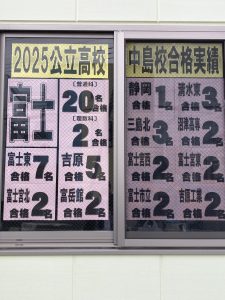 2025公立高校
富士
[普通科]
20名
合格
[理数科]
2名
合格
富士東
合格7名
吉原
合格5名
富士宮北
合格2名
富岳館
合格2名
中島校合格実績
静岡
合格1名
清水東
合格3名
三島北
合格3名
沼津高専
合格2名
富士宮西
合格2名
富士宮東
合格2名
富士市立
合格2名
吉原工業
合格2名